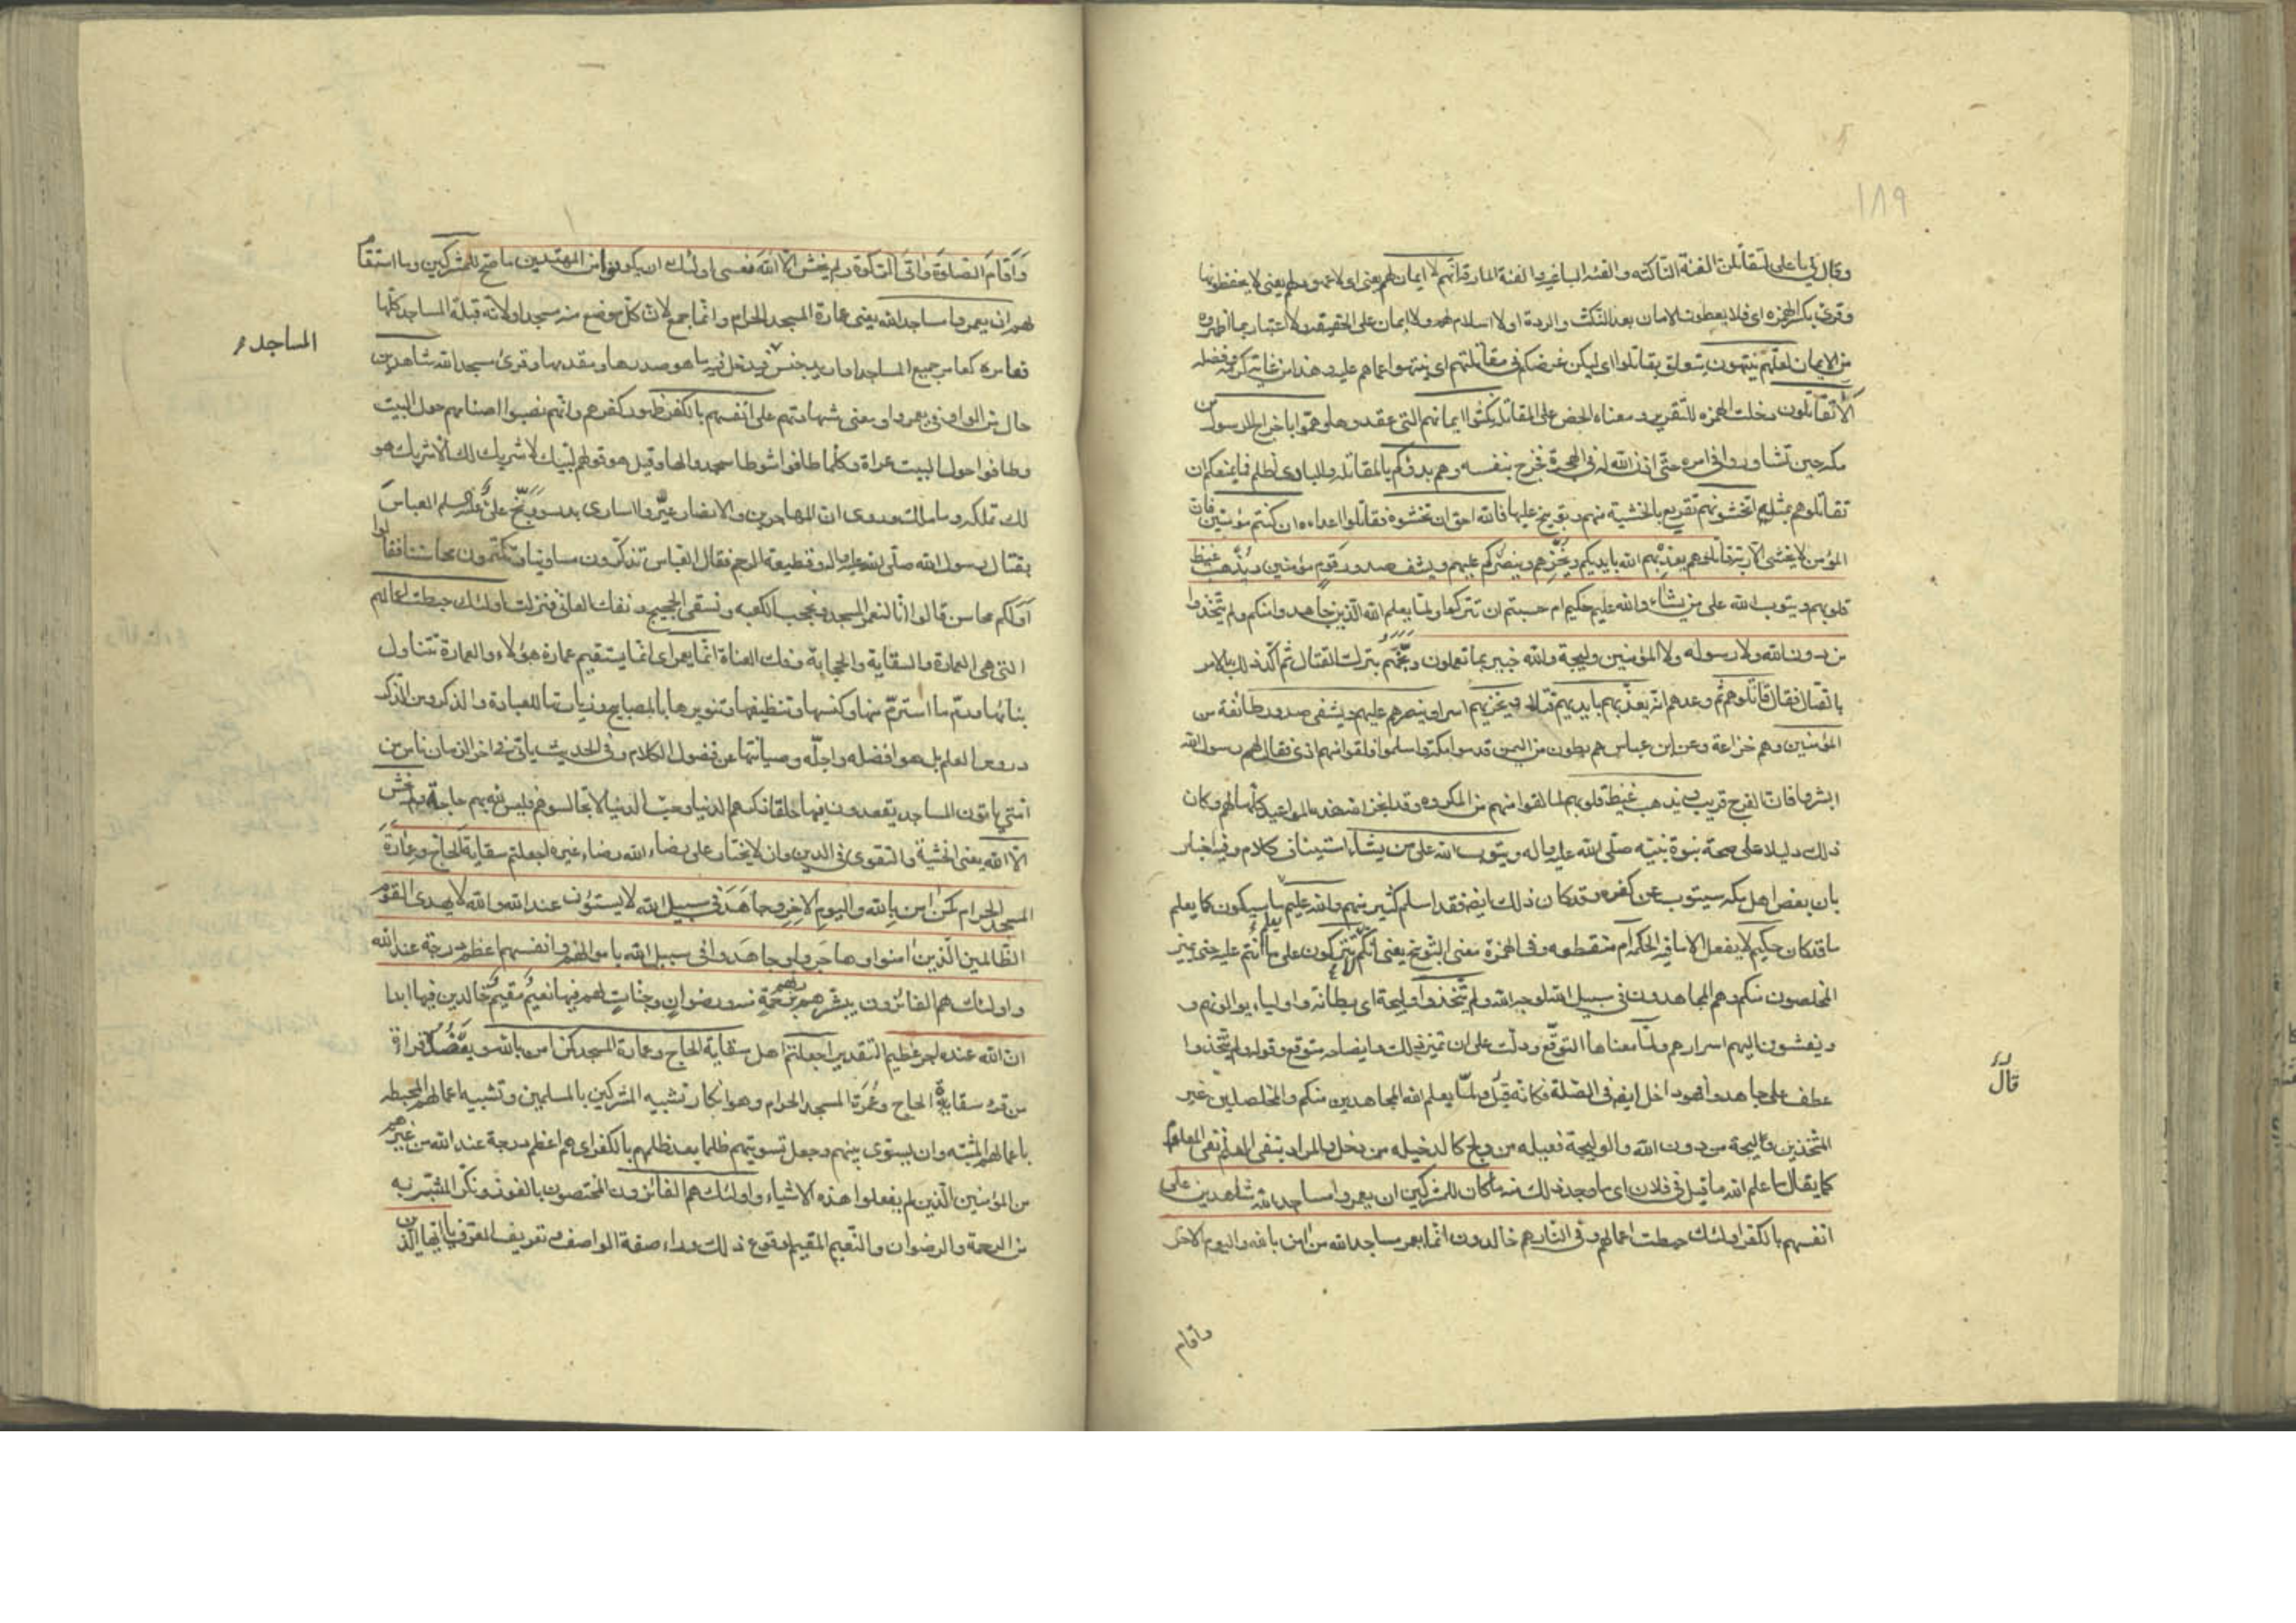 ١٨٩
وقال لي يا علي لتقاتلن الفئة الناكثة والفئة الباغية والفئة المارقة انهم لا ايمان لهم يعني اي لا عهود لهم يعني لا يحفظونها
وقرئ بكسر الهمزه اي فلا يعطون الامان بعد النكث والردة او لا اسلام لهم ولا ايمان على الحقيقة ولا اعتبار بما اظهروه
من الايمان لعلهم ينتهون يتعلق بقاتلوا اي ليكن غرضكم في مقاتلتهم اي ينتهوا عما هم عليه وهذا من غاية كرمه وفضله
الا تقاتلون دخلت الهمزه للتقرير ومعناه الحض على المقاتلة نكثوا ايمانهم التي عقدوها وهموا باخراج الرسول من
مكه حين تشاوروا في امره حتى اذن الله له في الهجرة فخرج بنفسه وهم بدؤكم بالمقاتلة والبادي اظلم فما يمنعكم ان
تقاتلوهم بمثله اتخشونهم تقريع بالخشية منهم وتوبيخ عليها فالله احق ان تخشوه فقاتلوا اعداءه ان كنتم مؤمنين فان
المؤمن لا يخشى الا ربه قاتلوهم يعذبهم الله بايديكم ويخزهم وينصركم عليهم ويشف صدور قوم مؤمنين ويذهب غيظ
قلوبهم ويتوب الله على من يشاء والله عليم حكيم ام حسبتم ان تتركوا ولما يعلم الله الذين جاهدوا منكم ولم يتخذوا
من دون الله ولا رسوله ولا المؤمنين وليجة والله خبير بما تعملون وبخهم بترك القتال ثم اكد ذلك بالامر
بالقتال فقال قاتلوهم ثم وعدهم انه يعذبهم بايديهم قتلا ويخزيهم اسرا وينصرهم عليهم ويشفي صدور طائفة من
المؤمنين وهم خزاعة وعن ابن عباس هم بطون من اليمن قدموا مكة واسلموا فلقوا منهم اذى فقال لهم رسول الله
ابشروا فان الفرج قريب ويذهب غيظ قلوبهم لما لقوا منهم من المكروه وقد انجز الله هذه المواعيد كلها لهم وكان
ذلك دليلا على صحة نبوة نبيه صلى الله عليه واله ويتوب الله على من يشاء استيناف كلام وفيه اخبار
بان بعض اهل مكه سيتوب عن كفره وقد كان ذلك ايضا فقد اسلم كثير منهم والله عليم يعلم ما سيكون كما يعلم
ما قد كان حكيم لا يفعل الا ما فيه الحكمه ام منقطعه وفي الهمزة معنى التوبيخ يعني انكم لا تتركون على ما انتم عليه حتى يميز
المخلصون منكم وهم المجاهدون في سبيل الله لوجه الله ولم يتخذوا وليجة اي بطانة واولياء يوالونهم و
ويفشون اليهم اسرارهم ولما معناها التوقع ودلت على ان تميز ذلك وايضاحه متوقع وقوله ولم يتخذوا
عطف على جاهدوا فهو داخل ايضا في الصلة فكانه قيل ولما يعلم الله المجاهدين منكم والمخلصلين غير
قال
المتخذين وليجة من دون الله والوليجة فعيله من ولج كالدخيله من دخل والمراد بنفي العلم نفي المعلوم
كما يقال ما علم الله ما قيل في فلان اي ما وجد ذلك منه ما كان للمشركين ان يعمروا مساجد الله شاهدين على
انفسهم بالكفر اولئك حبطت اعمالهم وفي النار هم خالدون انما يعمر مساجد الله من امن بالله واليوم الاخر
واقام
وَاَقَامَ الصلوةَ وَاتَى الزكوة ولم يخش الا اللهَ فعسى اولئك ان يكونوا من المهتدين ما صح للمشركين وما استقام
لهم ان يعمروا مساجد الله يعني عمارة المسجد الحرام وانما جمع لان كل موضع منه مسجد او لانه قبلة المساجد كلها
المساجد
فعامره كعامر جميع المساجد او اريد جنس فيدخل فيه ما هو صدرها ومقدمها وقرئ مسجد الله شاهدين
حال من الواو في يعمروا ومعنى شهادتهم على انفسهم بالكفر ظهور كفرهم وانهم نصبوا اصنامهم حول البيت
وطافوا حول البيت عراة وكلما طافوا شوطا سجدوا لها وقيل هو قولهم لبيك لا شريك لك الا شريك هو
لك تملكه وما ملك وروي ان المهاجرين والانصار عيروا اسارى بدر ووبخ علي عليه السلم العباس
بقتال رسول الله صلى الله عليه واله وقطيعة الرحم فقال العباس تذكرون مساوينا وتكتمون محاسننا فقالوا
اولكم محاسن قالوا انا لنعمر المسجد ونحجب الكعبه ونسقي الحجيج ونفك العاني فنزلت اولئك حبطت اعمالهم
التي هي العمارة والسقاية والحجابة وفك العناة انما يعمر اي انما يستقيم عمارة هؤلاء والعمارة تتناول
بنائها ورم ما استرم منها وكنسها وتنظيفها وتنويرها بالمصابيح وزيارتها للعبادة والذكر ومن الذكر
دروس العلم بل هو افضله واجله وصيانتها عن فضول الكلام وفي الحديث ياتي في اخر الزمان ناس من
امتي ياتون المساجد يقعدون فيها حلقا ذكرهم الدنيا وحب الدنيا لا تجالسوهم فليس لله بهم حاجة ولم يخش
الا الله يعني الخشية والتقوى في الدين وان لا يختار على رضاء الله رضاء غيره اجعلتم سقاية الحاج وعمارة
المسجد الحرام كمن امن بالله واليوم الاخر وجاهد في سبيل الله لا يستوون عند الله والله لا يهدي القوم
الظالمين الذين امنوا وهاجروا وجاهدوا في سبيل الله باموالهم وانفسهم اعظم درجة عند الله
واولئك هم الفائزون يبشرهم ربهم برحمة منه ورضوان وجنات لهم فيها نعيم مقيم خالدين فيها ابدا
ان الله عنده اجر عظيم التقدير اجعلتم اهل سقاية الحاج وعمارة المسجد كمن امن بالله ويعضده قراءة
من قرء سقاية الحاج وعمرة المسجد الحرام وهو انكار تشبيه المشركين بالمسلمين وتشبيه اعمالهم المحبطه
باعمالهم المثبته وان يستوى بينهم وجعل تسويتهم ظلما بعد ظلمهم بالكفر اي هم اعظم درجة عند الله من غيرهم
من المؤمنين الذين لم يفعلوا هذه الاشياء واولئك هم الفائزون المختصون بالفوز ونكر المبشر به
من الرحمة والرضوان والنعيم المقيم لوقوع ذلك وراء صفة الواصف وتعريف المعرف يا ايها الذين